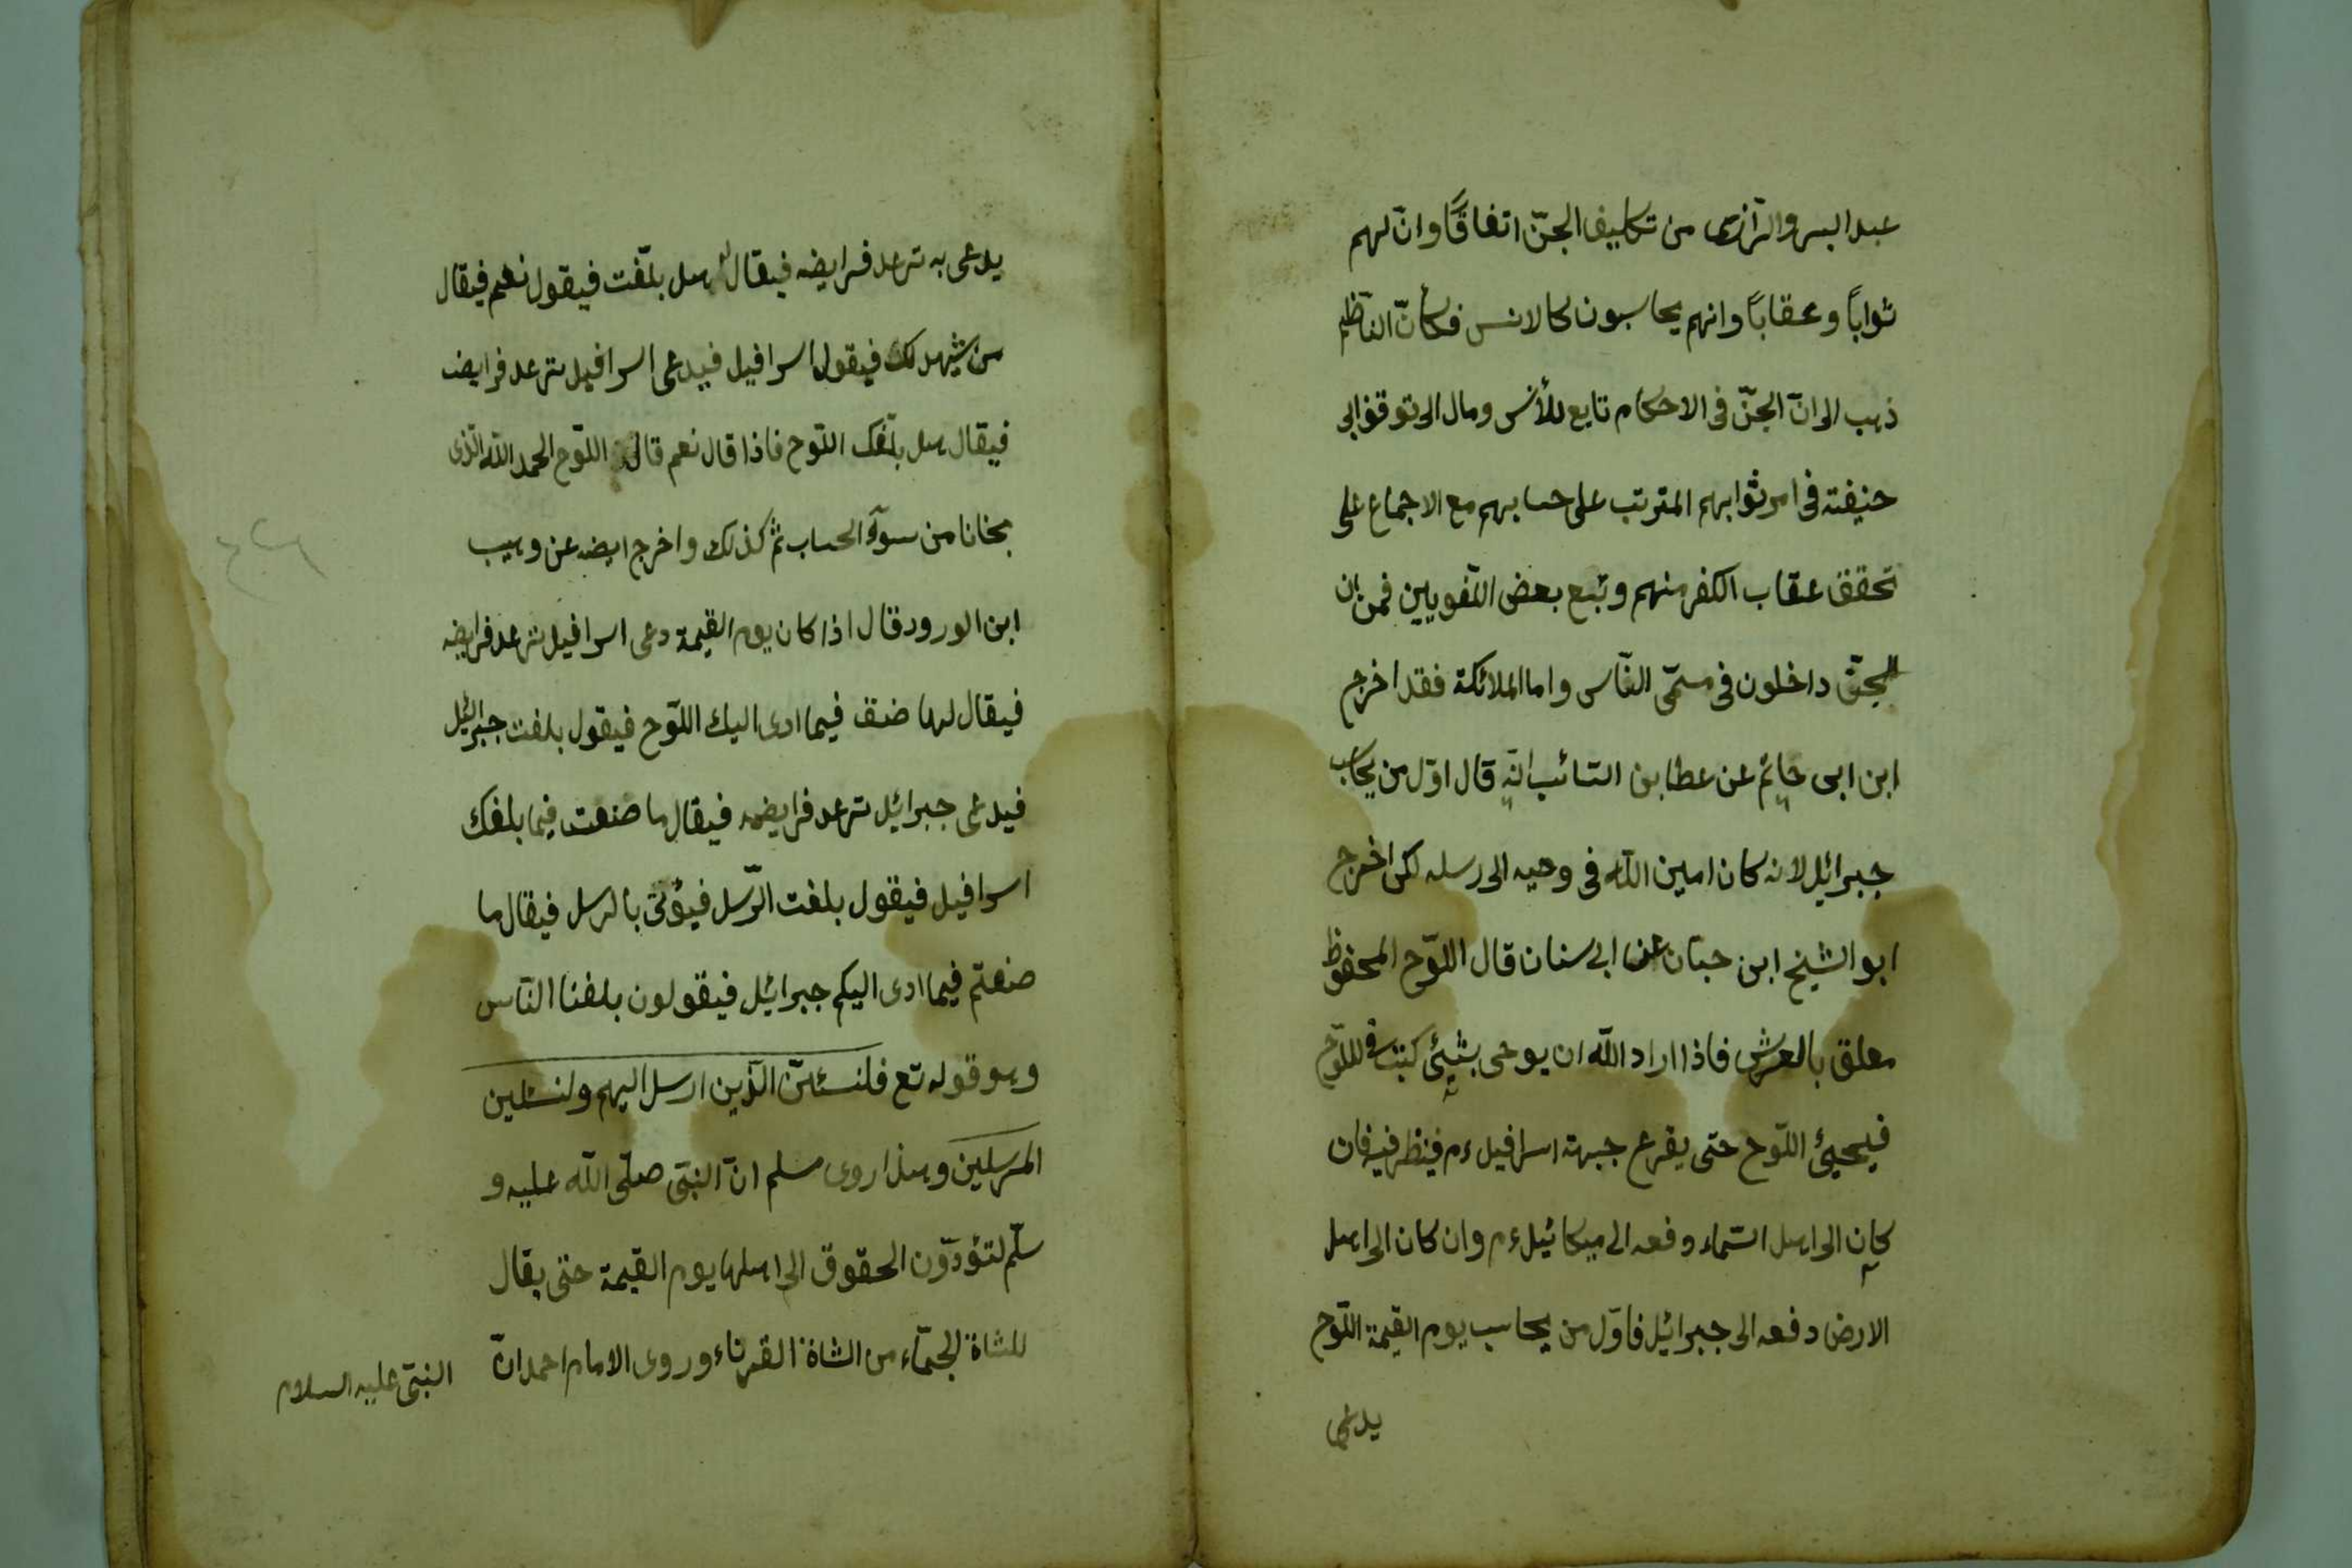 عبد البر والرّازى من تكليف الجنّ اتفاقًا وانّ لهم
ثوابًا وعقابًا وانهم يحاسبون كالانس فكأنّ النّاظم
ذهب الى انّ الجنّ فى الاحكام تابع للأنس ومال الى توقف ابى
حنيفته فى امر ثوابهم المترتب على حسابهم مع الاجماع على
تحقق عقاب الكفر منهم وتبع بعض اللّغويين فمن ان
الجنّ داخلون فى مسمّى النّاس واما الملائكة فقد اخرج
ابن ابى حاتم عن عطا بن السّائب انه قال اوّل من يحاسب
جبرائيل لانه كان امين اللّه فى وحيه الى رسله لكن اخرج
ابو الشيخ ابن حبّان عن ابى سنان قال اللّوح المحفوظ
معلق بالعرش فاذا اراد اللّه ان يوحى بشيئ كتب فى اللّوح
فيجيئ اللّوح حتى يقرع جبهة اسرافيل ءم فينظر فيه فان
كان الى اهل السّماء دفعه الى ميكائيل ءم وان كان الى اهل
الارض دفعه الى جبرائيل فاوّل من يحاسب يوم القيمة اللّوح
يدعى
يدعى به ترعد فرايضه فيقال له هل بلّغت فيقول نعم فيقال
من يشهد لك فيقول اسرافيل فيدعى اسرافيل ترعد فرايضه
فيقال هل بلّغك اللّوح فاذا قال نعم قال اللّوح الحمد اللّه الّذى
نجانا من سوآء الحساب ثمّ كذلك واخرج ايضه عن وهيب
ابن الورود قال اذا كان يوم القيمة دعى اسرافيل ترعد فرايضه
فيقال لها ضنف فيما ادى اليك اللّوح فيقول بلغت جبرائيل
فيدعى جبرائيل ترعد فرايضه فيقال ما صنعت فيما بلغك
اسرافيل فيقول بلغت الرّسل فيؤتى بالرسل فيقال ما
صنعتم فيما ادى اليكم جبرائيل فيقولون بلغنا النّاس
وهو قوله تع فلنسئلنّ الّذين ارسل اليهم ولنسئلين
المرسلين وهذا روى مسلم انّ النبّى صلّى اللّه عليه و
سلّم لتؤدّون الحقوق الى اهلها يوم القيمة حتى يقال
للشاة الجمّاء من الشاة القرناء وروى الامام احمد انّ
النبّى عليه السلام